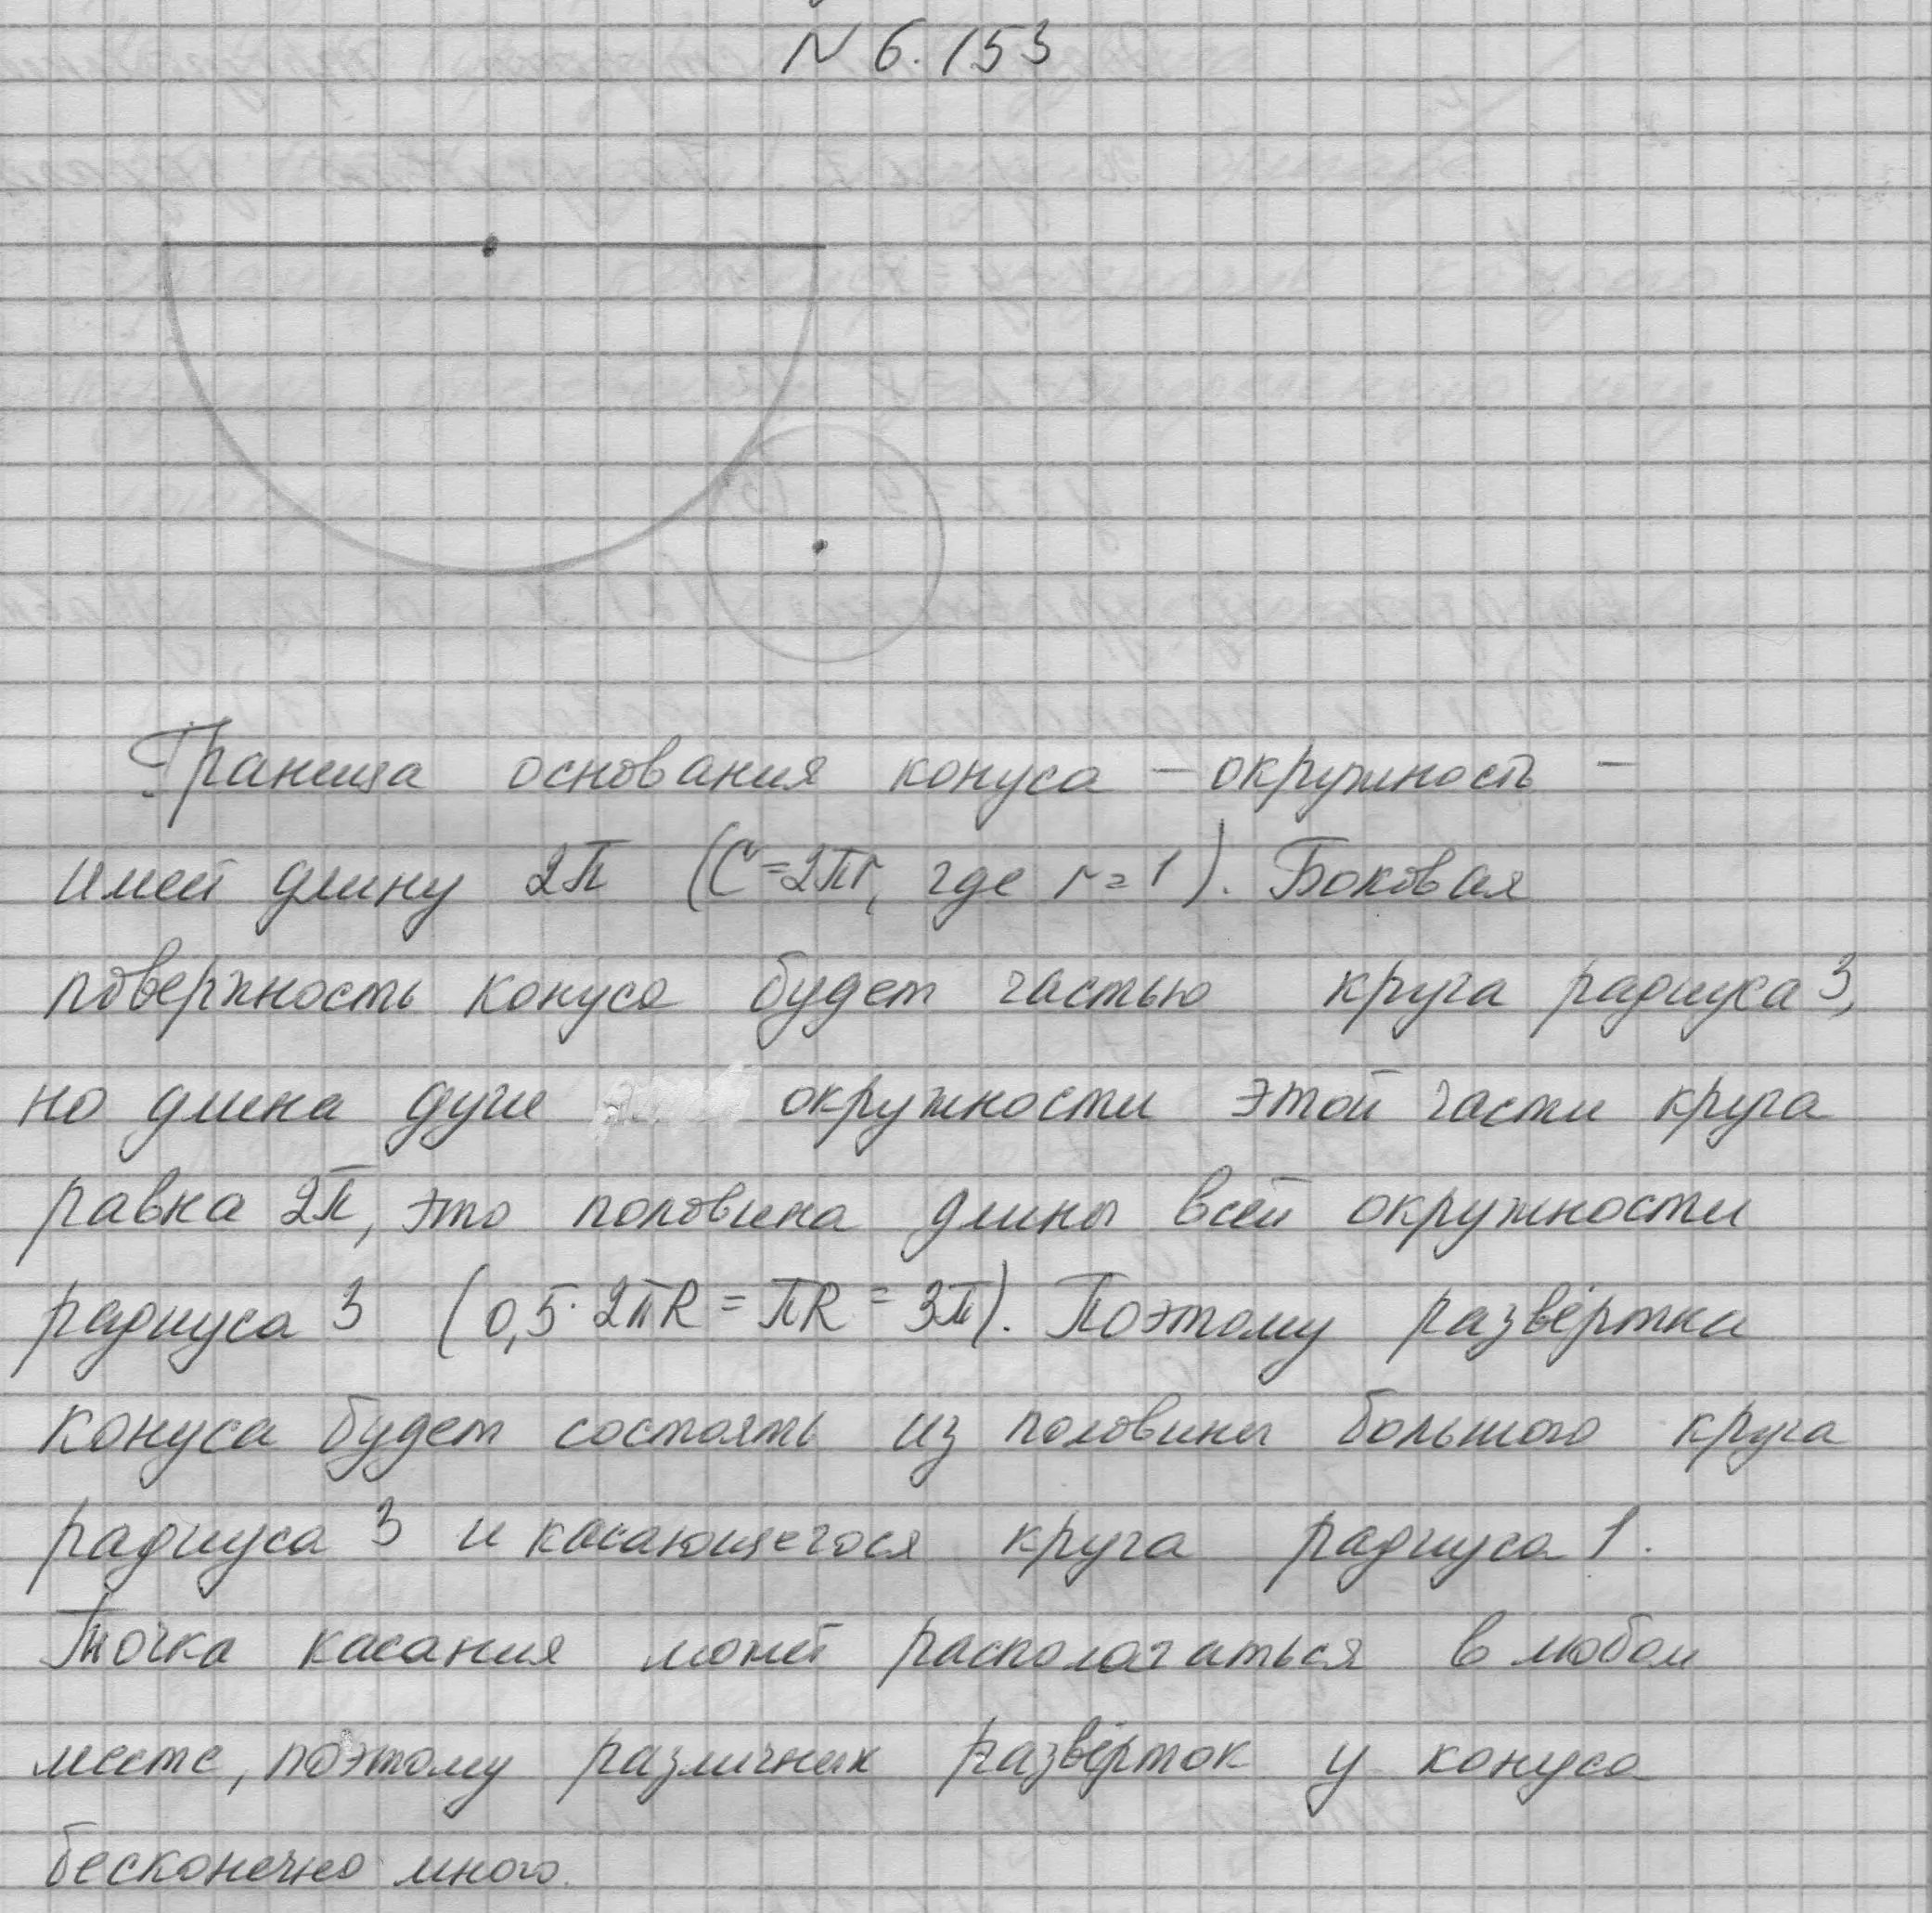 N 6.153
Граница основания конуса – окружность –
имеет длину 2π (C=2πr, где r=1). Боковая
поверхность конуса будет частью круга радиуса 3,
но длина дуги окружности этой части круга
равна 2π, это половина длины всей окружности
радиуса 3 (0,5·2πR = πR = 3π). Поэтому развёртка
конуса будет состоять из половины большого круга
радиуса 3 и касающегося круга радиуса 1.
Точка касания может располагаться в любом
месте, поэтому различных развёрток у конуса
бесконечно много.